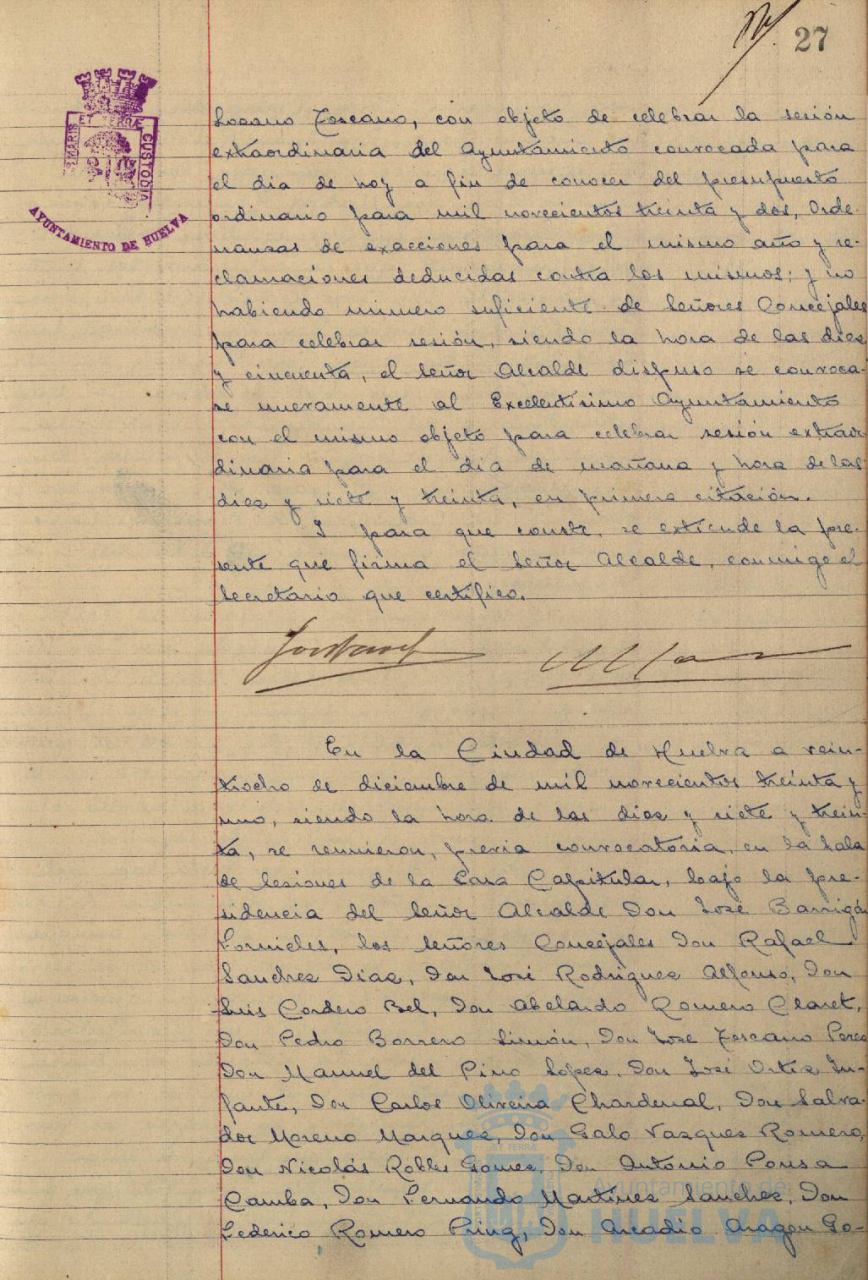 27
PORTUS MARIS ET TERRÆ CUSTODIA
AYUNTAMIENTO DE HUELVA
Lozano Toscano, con objeto de celebrar la sesión
extraordinaria del Ayuntamiento convocada para
el dia de hoy a fin de conocer del presupuesto
ordinario para mil novecientos treinta y dos, Orde-
nanzas de exacciones para el mismo año y re-
clamaciones deducidas contra los mismos; y no
habiendo número suficiente de Señores Concejales
para celebrar sesión, siendo la hora de las diez
y cincuenta, el Señor Alcalde dispuso se convoca-
se nuevamente al Excelentísimo Ayuntamiento
con el mismo objeto para celebrar sesión extraor
dinaria para el dia de mañana y hora de las
diez y siete y treinta, en primera citación.
Y para que conste, se extiende la pre-
sente que firma el Señor Alcalde, conmigo el
Secretario que certifico.
En la Ciudad de Huelva a vein-
tiocho de diciembre de mil novecientos treinta y
uno, siendo la hora de las diez y siete y trein-
ta, se reunieron, previa convocatoria, en la Sala
de Sesiones de la Casa Capitular, bajo la pre-
sidencia del Señor Alcalde Don José Barrigón
Fornieles, los Señores Concejales Don Rafael
Sanchez Diaz, Don José Rodriguez Alfonso, Don
Luis Cordero Bel, Don Abelardo Romero Claret,
Don Pedro Borrero Limón, Don Jose Toscano Perez
Don Manuel del Pino Lopez, Don José Ortiz In-
fante, Don Carlos Oliveira Chardenal, Don Salva-
dor Moreno Marquez, Don Galo Vazquez Romero,
Don Nicolás Robles Gomez, Don Antonio Pousa
Camba, Don Fernando Martinez Sanchez, Don
Federico Romero Pring, Don Arcadio Aragon Go-
Ayuntamiento de
HUELVA